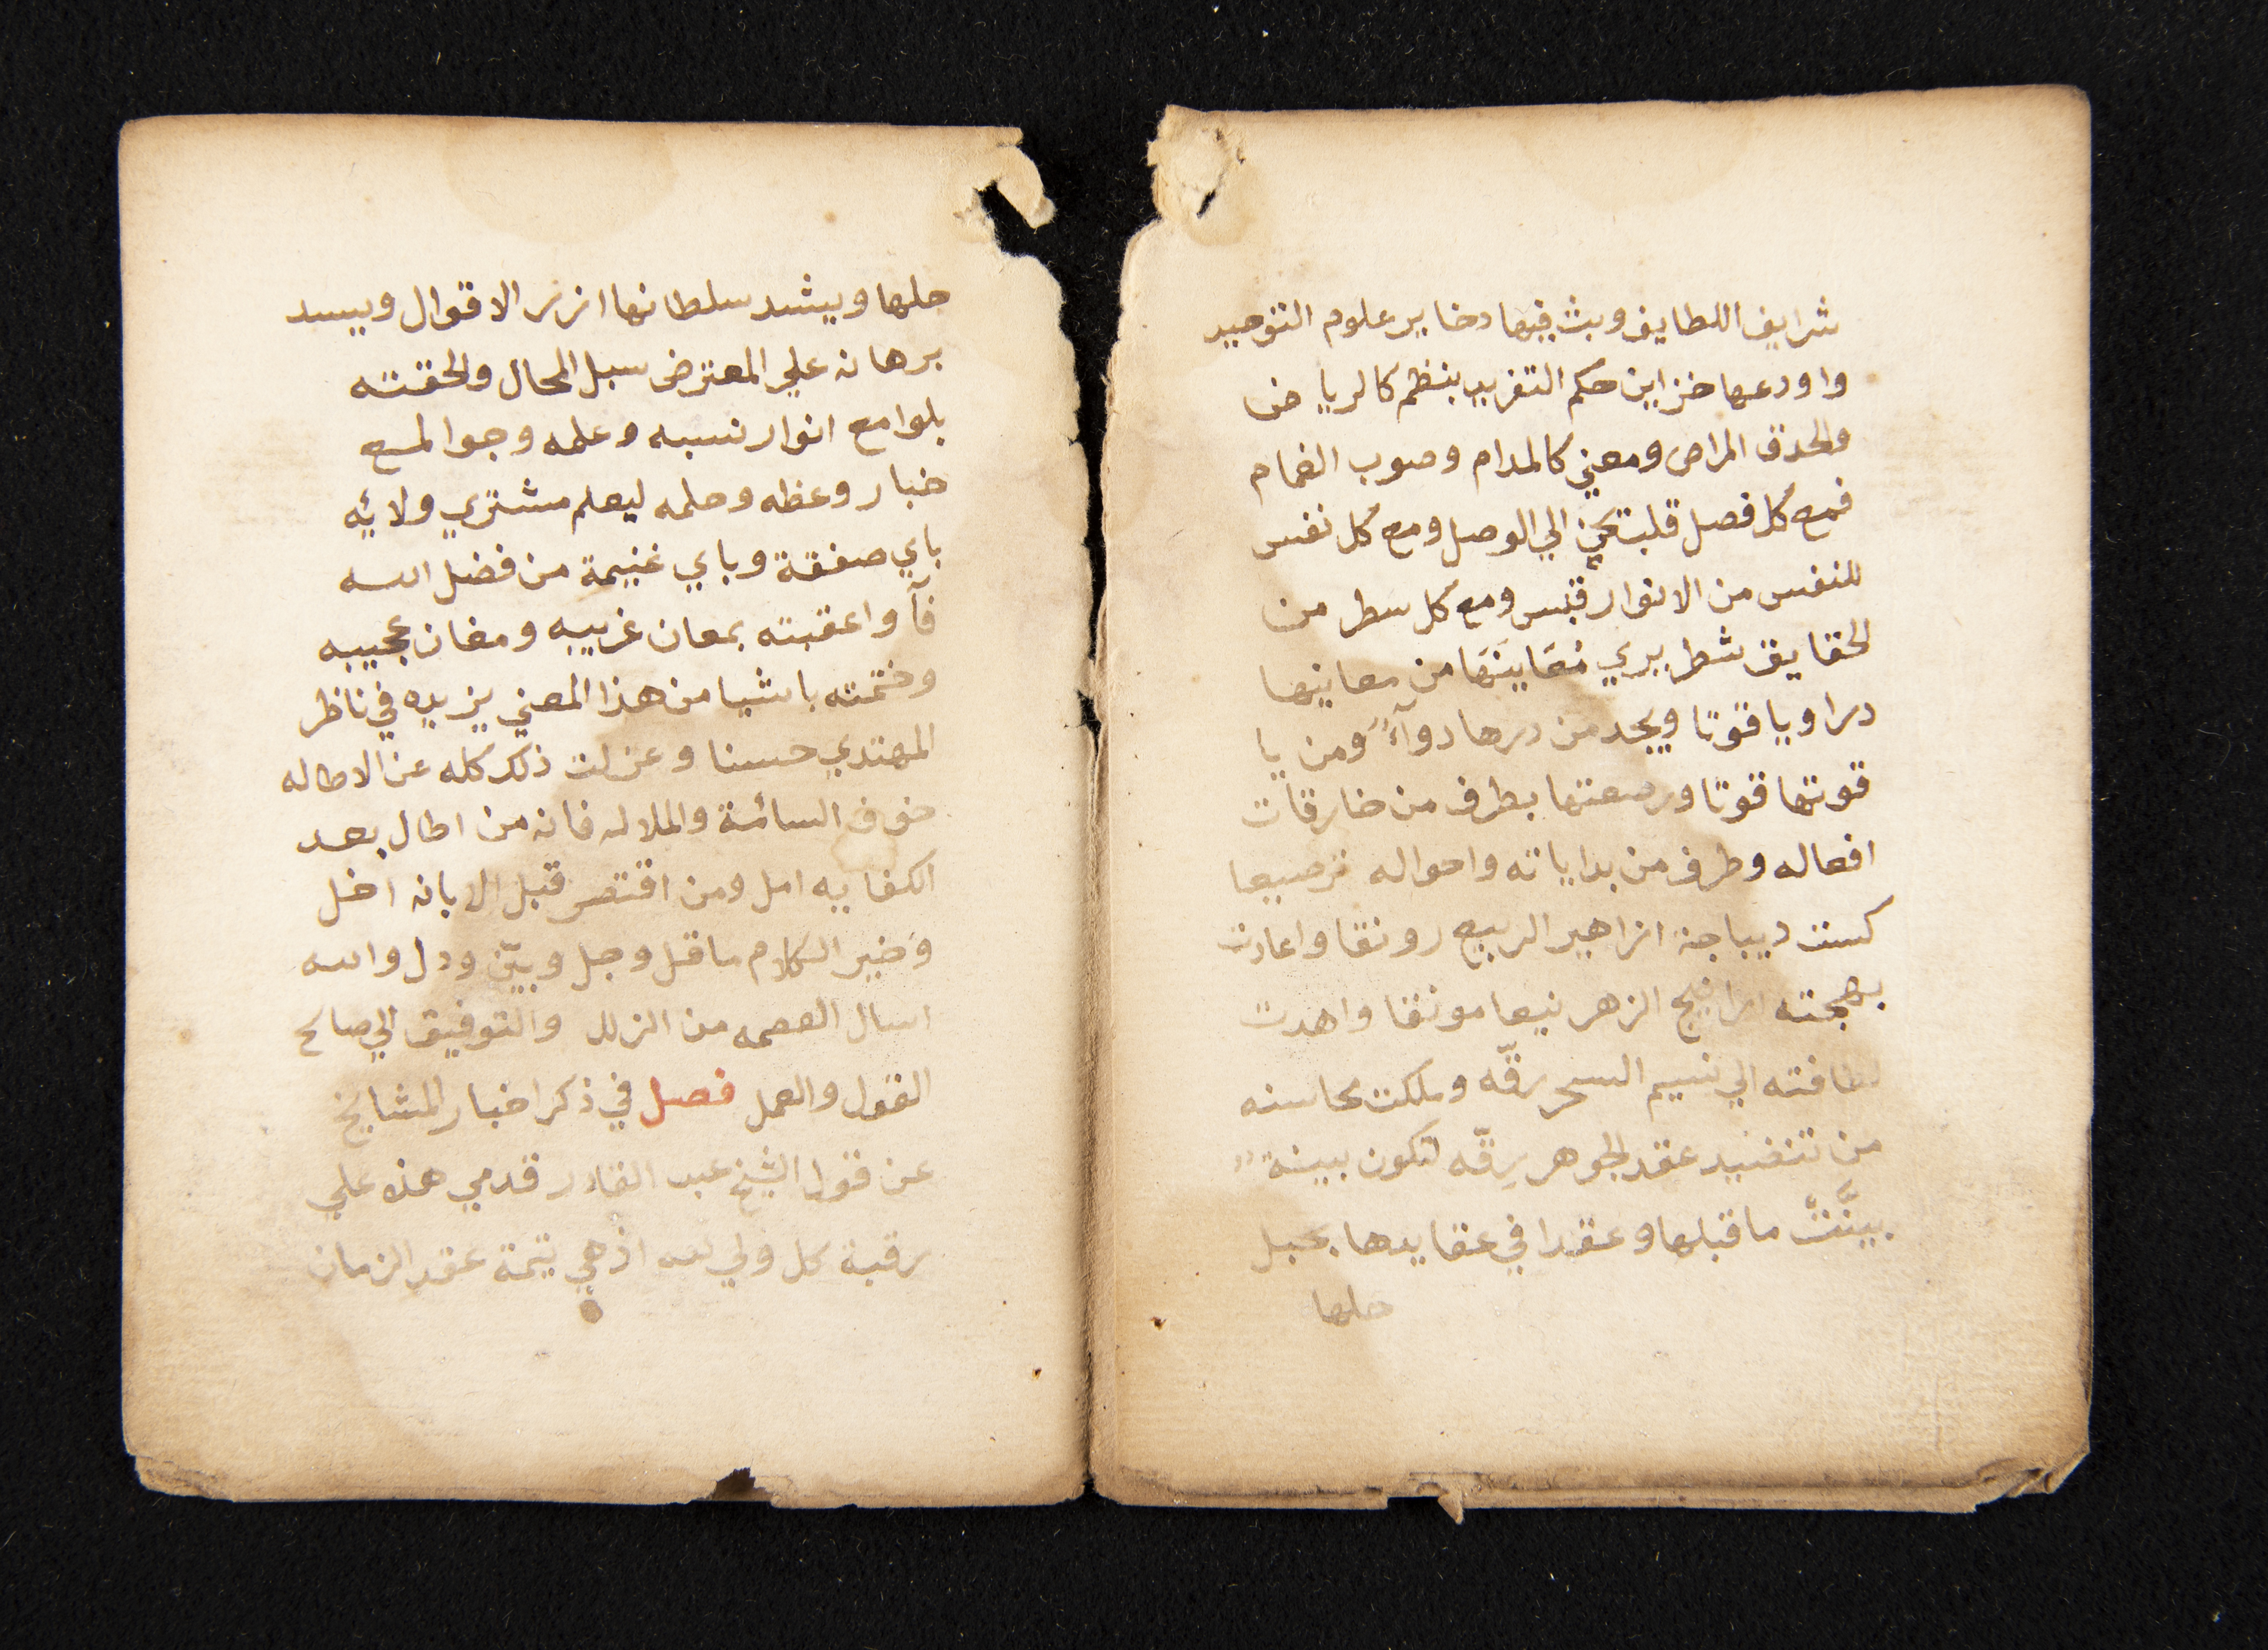 شرايف اللطايف وبث فيها دخاير علوم التوحيد
واودعها خزاين حكم التفريد بنظم كالريا ض
والحدق المراض ومعني كالمدام وصوب الغمام
فمع كل فصل قلب يحن الي الوصل ومع كل نفس
للنفس من الانوار قبس ومع كل سطر من
الحقايق شطر يري مُعَاينَهَا من معانيها
درا وياقوتا ويجد من درها دوآءً ومن يا
قوتها قوتا ورصعتها بطرف من خارقات
افعاله وطرف من بداياته واحواله ترصيعا
كست ديباجة ازاهير الربيع رونقا واعادت
بهجته اراييج الزهر نيعا مونقا واهدت
لطافته الي نسيم السحر رقّه وملكت محاسنه
من تنضيد عقد الجوهر رقّه لتكون بينة
بيَّنتْ ما قبلها وعقدا في عقايدها بحبل
حلها
حلها ويشد سلطانها ازر الاقوال ويسد
برهانه علي المعترض سبل المحال والحقته
بلوامع انوار نسبه وعلمه وجوامع
خبار وعظه وحلمه ليعلم مشتري ولائيه
باي صفقة وباي غنيمة من فضل الله
فآ واعقبته بمعان غريبه ومغان عجيبه
وختمته باشيا من هذا المعني يزيده في ناظر
المهتدي حسنا وعزلت ذلك كله عن الاطاله
خوف السائمة والملاله فانه من اطال بعد
الكفايه امل ومن اقتصر قبل الابانه اخل
وخير الكلام ما قل وجل وبيّن ودل والله
اسال العصمه من الزلل والتوفيق الي صالح
القول والعمل فصل في ذكر اخبار المشايخ
عن قول الشيخ عبد القادر قدمي هذه علي
رقبة كل ولي لله اذ هي يتيمة عقد الزمان